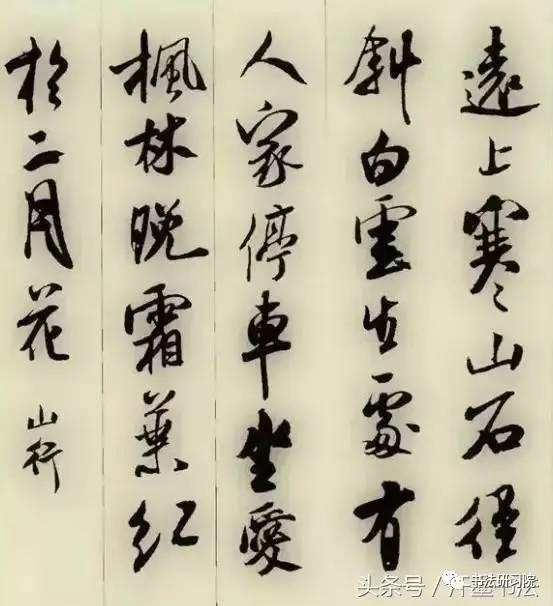 遠上寒山石徑
斜白雲生處有
人家停車坐愛
楓林晚霜葉紅
於二月花
山行
书法研习院
头条号/汗墨书法